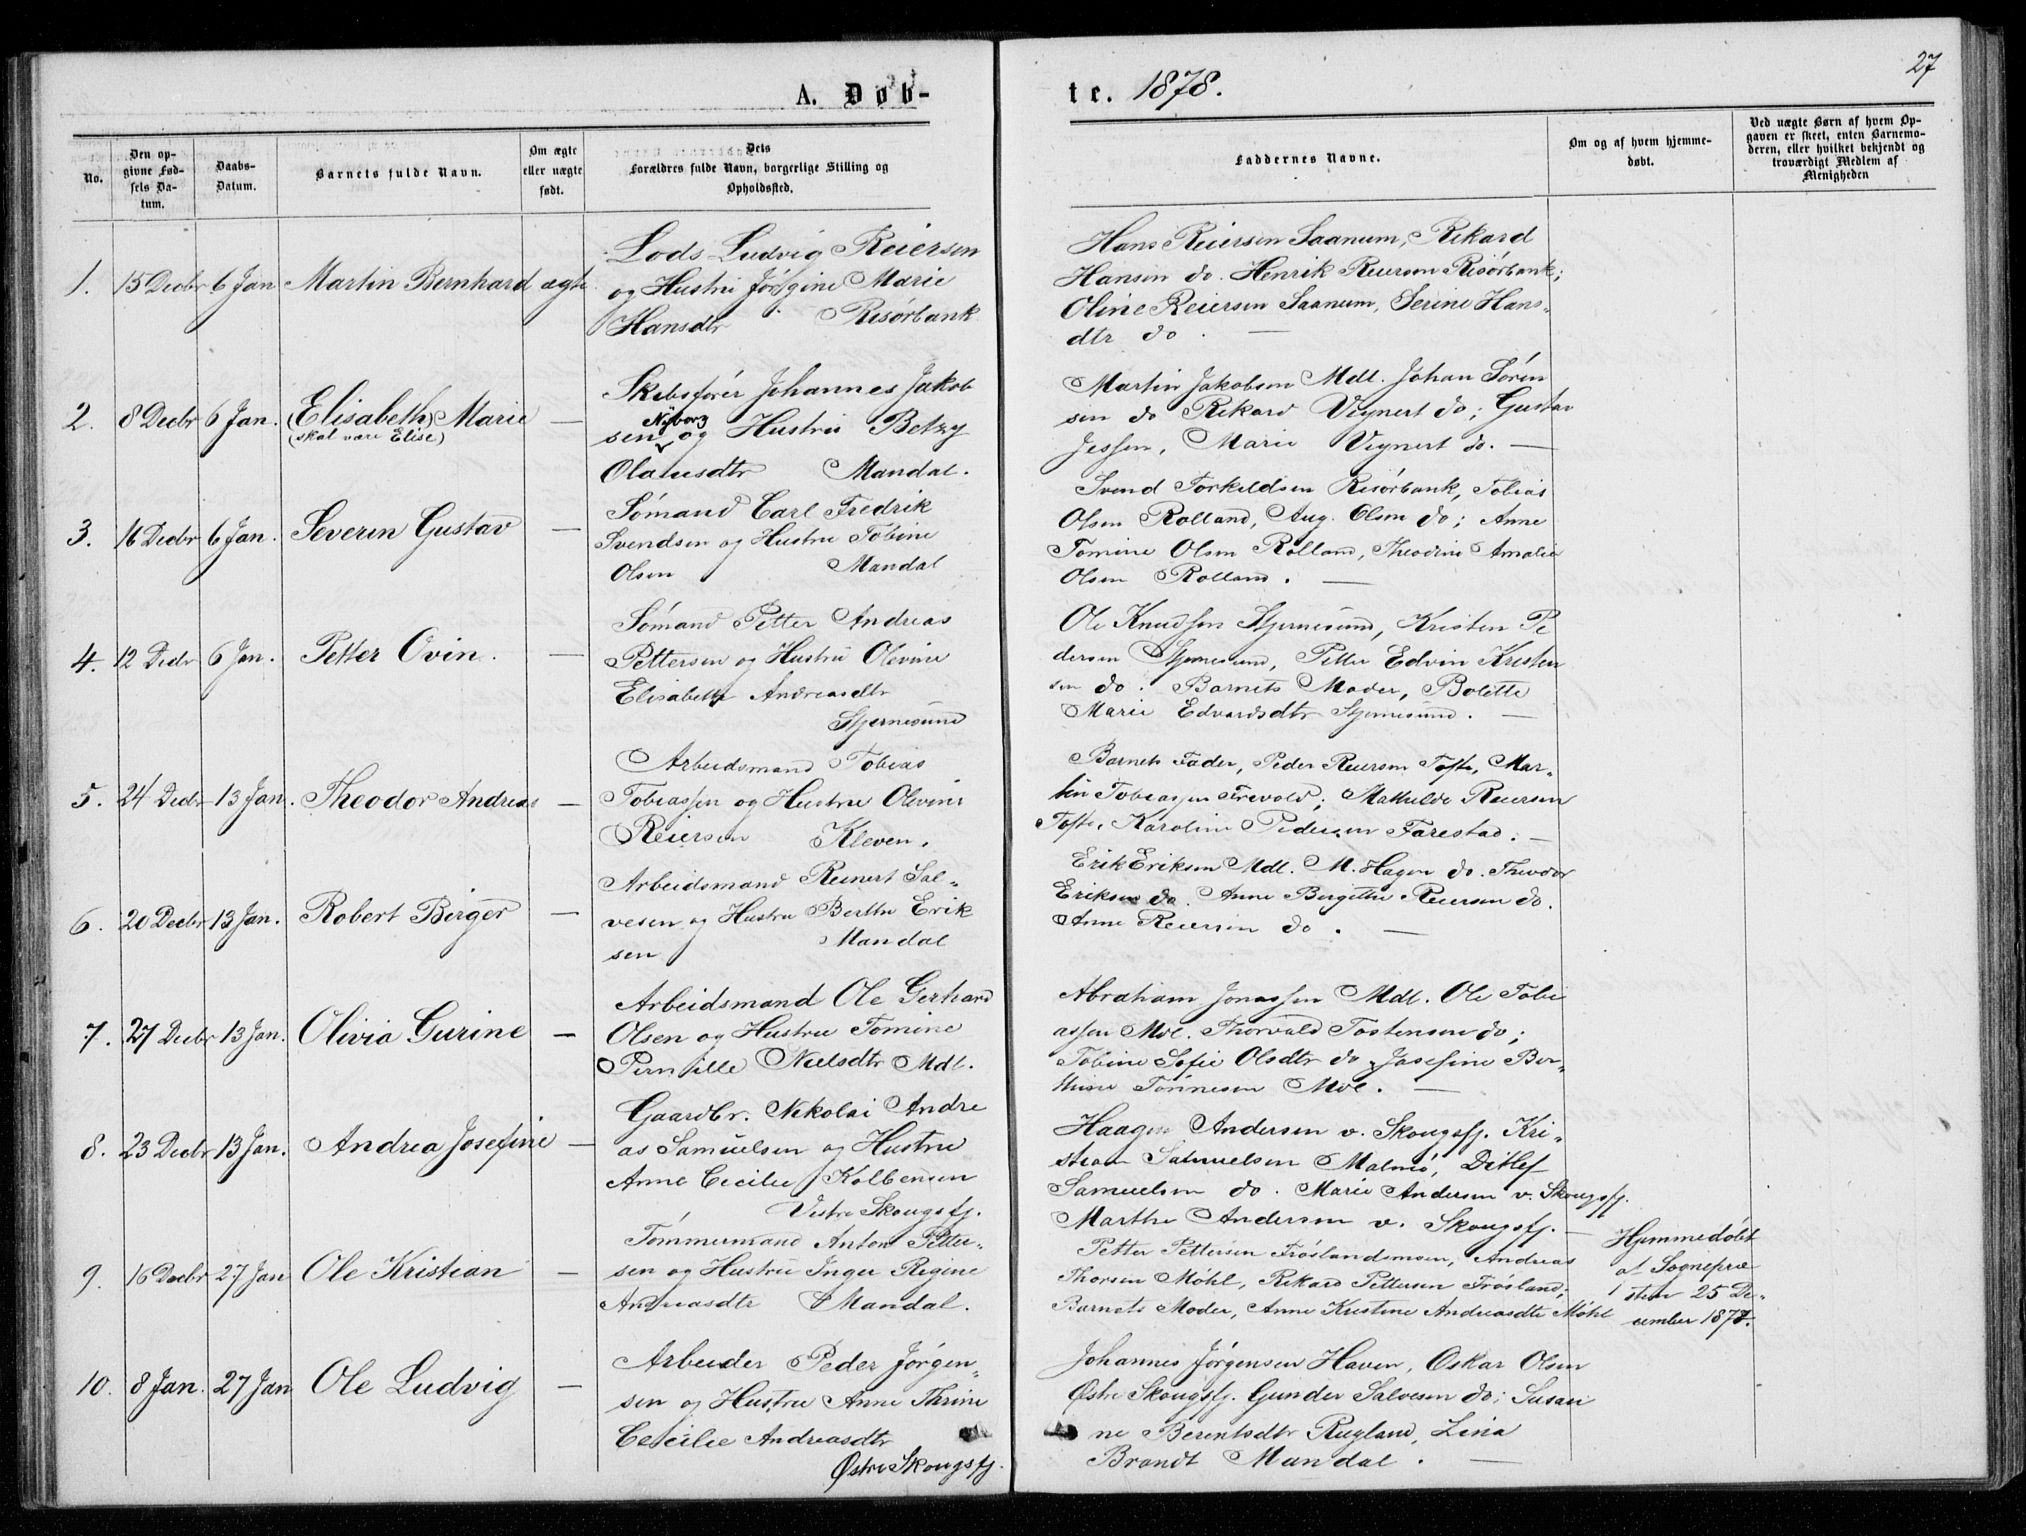 27
A. Døb-
te. 1878.
No.
Den op-
givne Fød-
sels Da-
tum.
Daabs-
Datum.
Barnets fulde Navn.
Om ægte
eller uægte
født.
Dets
Forældres fulde Navn, borgerlige Stilling og
Opholdssted.
Faddernes Navne.
Om og af hvem hjemme-
døbt.
Ved uægte Børn af hvem Op-
gaven er skeet, enten Barnemo-
deren, eller hvilket bekjendt og
troværdigt Medlem af
Menigheden
1. 15 Decbr 6 Jan Martin Bernhard ægte
Lods Ludvig Reiersen
og Hustru Jørgine Marie
Hansdtr Risørbank
Hans Reiersen Saanum, Rikard
Hansen do. Henrik Reiersen Risørbank;
Oline Reiersen Saanum, Serine Hans-
dtr do. —
2. 8 Decbr 6 Jan. (Elisabeth) Marie —
(skal være Elise)
Skibsfører Johannes Jakob
Nyborg
sen og Hustru Betzy
Olausdtr Mandal.
Martin Jakobsen Mdl. Johan Sören
sen do Rikard Vignert do; Gustav
Jessen, Marie Vignert do. —
3. 16 Decbr 6 Jan. Severin Gustav —
Sömand Carl Fredrik
Svendsen og Hustru Tobine
Olsen Mandal
Svend Torkildsen Risørbank, Tobias
Olsen Rolland, Aug. Olsen do; Anne
Tomine Olsen Rolland, Theodine Amalie
Olsen Rolland. —
4. 12 Decbr 6 Jan. Petter Ovin. —
Sömand Petter Andreas
Pettersen og Hustru Olevine
Elisabeth Andreasdtr
Stjernesund
Ole Knudssen Stjernesund, Kristen Pe
dersen Stjernesund, Petter Edvin Kristen
sen do. Barnets Moder, Bolette
Marie Edvardsdtr Stjernesund. —
5. 24 Decbr 13 Jan. Theodor Andreas —
Arbeidsmand Tobias
Tobiassen og Hustru Olevine
Reiersen Kleven.
Barnets Fader, Peder Reiersen Tofte, Mar-
tin Tobiassen Frevold; Mathilde Reiersen
Tofte, Karoline Pedersen Farestad. —
6. 20 Decbr 13 Jan. Robert Birger —
Arbeidsmand Reinert Sal-
vesen og Hustru Berthe Erik
sen Mandal
Erik Eriksen Mdl. M. Hagen do. Theodor
Eriksen do. Anne Birgithe Reiersen do.
Anne Reiersen do. —
7. 27 Decbr 13 Jan. Olivia Gurine —
Arbeidsmand Ole Gerhard
Olsen og Hustru Tomine
Pernille Nielsdtr Mdl.
Abraham Jonassen Mdl. Ole Tobi
assen Mdl. Thorvald Tostensen do;
Tobine Sofie Olsdtr do Josefine Ber-
thine Tönnesen Mdl. —
8. 23 Decbr 13 Jan. Andrea Josefine —
Gaardbr. Nikolai Andre
as Samuelsen og Hustru
Anne Cicilie Kolbensen
Vestre Skougsfj.
Haagen Andersen v. Skougsfj. Kri-
stian Samuelsen Malmö, Ditlef
Samuelsen do. Marie Andersen v. Skougsfj.
Marthe Andersen v. Skougsfj. —
9. 16 Decbr 27 Jan Ole Kristian —
Tömmermand Anton Petter-
sen og Hustru Inger Regine
Andreasdtr Mandal.
Petter Pettersen Fröslandsmoen, Andreas
Thorsen Møhl, Rikard Pettersen Frösland;
Barnets Moder, Anne Kristine Andreasdtr Møhl
Hjemmedøbt
af Sognepræ
sten 25 De-
cember 1877.
10. 8 Jan. 27 Jan Ole Ludvig —
Arbeider Peder Jørgen-
sen og Hustru Anne Thrine
Cecilie Andreasdtr
Østre Skougsfj.
Johannes Jørgensen Haven, Oskar Olsen
Østre Skougsfj. Gunder Salvesen do; Susan
ne Berentsdtr Rugland, Lina
Brandt Mandal. —